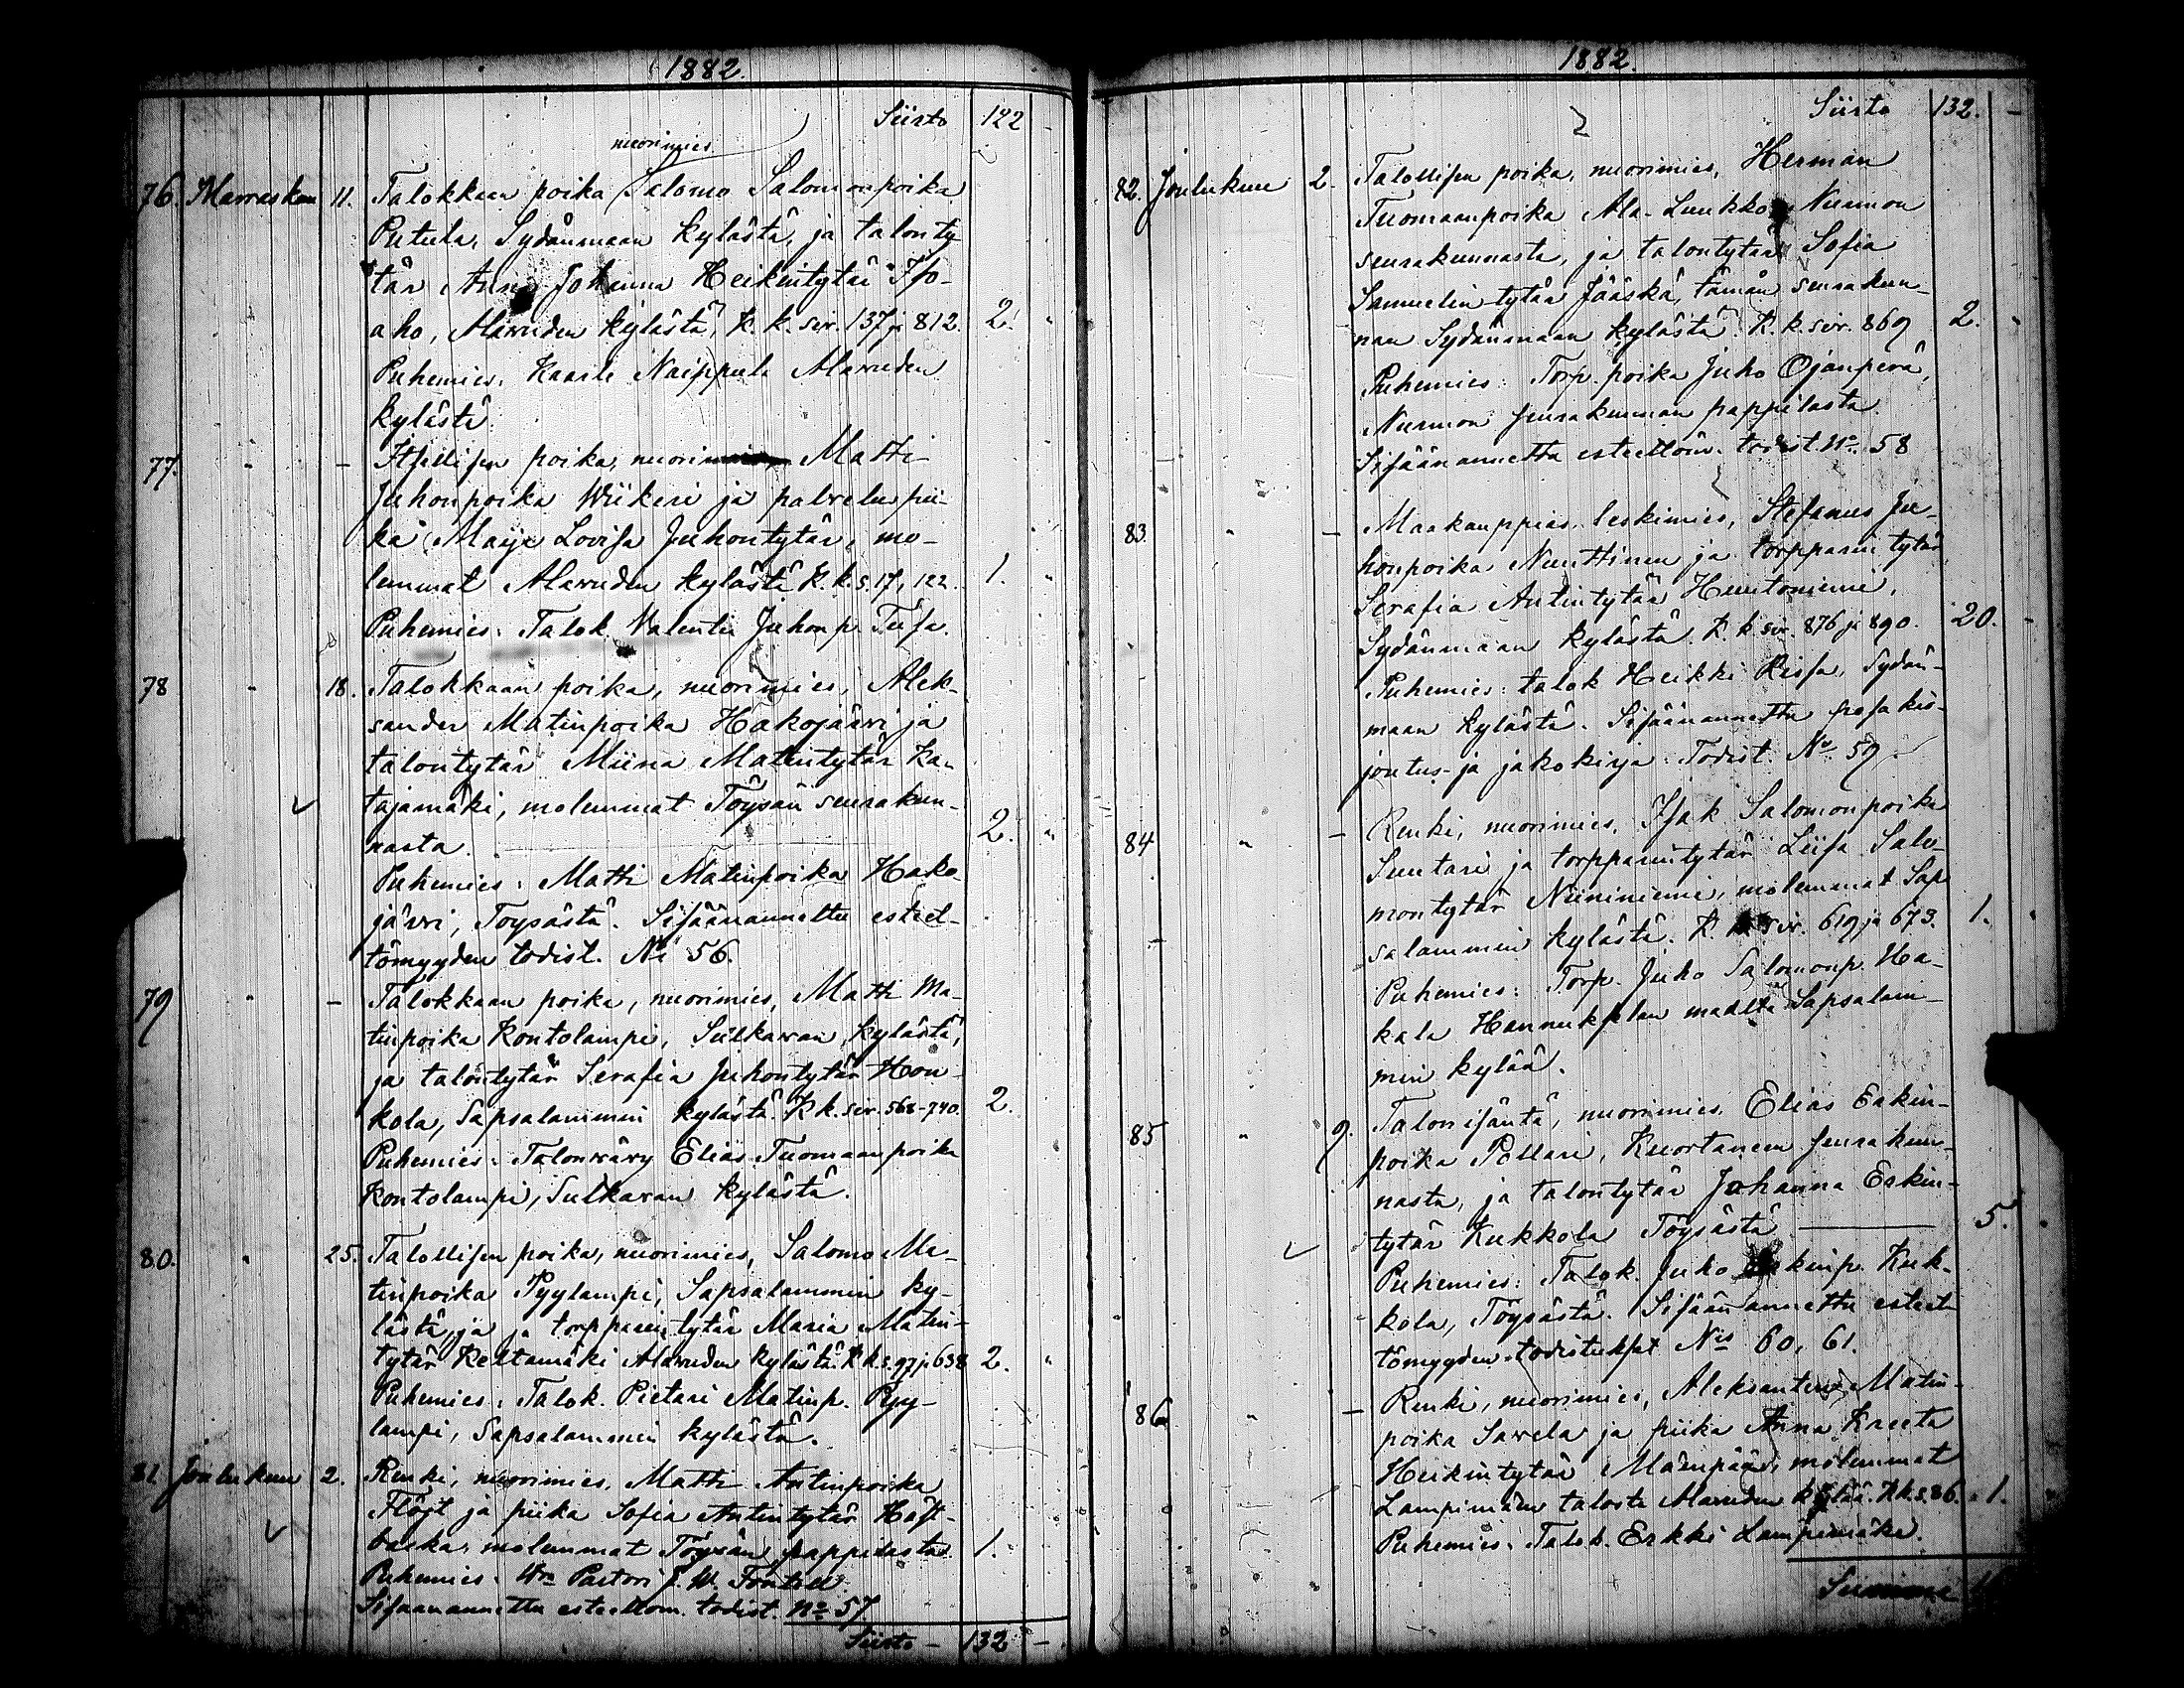 1882.
Siirto 122 -
nuorimies
76. Marraskuu 11. Talokkaan poika Salomo Salomonpoika
Putula, Sydänmaan kylästä, ja talonty
tär Anna Johanna Heikintytär Iso-
aho, Alavuden kylästä, K. k. siv. 137 ja 812. 2. "
Puhemies: Kaarle Naippula Alavuden
kylästä.
77. " - Itsellisen poika, nuorimies, Matti
Juhonpoika Wiikeri ja palvelus pii-
ka Maija Lovisa Juhontytär, mo-
lemmat Alavuden kylästä K. k. s. 17, 122. 1. "
Puhemies: Talok. Valentin Juhonp. Tusa.
78 " 18. Talokkaan poika, nuorimies, Alek-
sander Matinpoika Hakojärvi ja
talontytär Miina Matintytär Ka-
tajamäki, molemmat Töysän seurakun-
nasta. 2. "
Puhemies: Matti Matinpoika Hako-
järvi, Töysästä. Sisäänannettu esteet-
tömyyden todist. No 56.
79 " - Talokkaan poika, nuorimies, Matti Ma-
tinpoika Kontolampi, Sulkavan kylästä,
ja talontytär Serafia Juhontytär Hon-
kola, Sapsalammin kylästä. K k. siv. 568-740. 2.
Puhemies: Talonvävy Elias Tuomaanpoika
Kontolampi, Sulkavan kylästä.
80. " 25. Talollisen poika, nuorimies, Salomo Ma-
tinpoika Pyylampi, Sapsalammin ky-
lästä, ja torpparin tytär Maria Matin-
tytär Keltamäki Alavuden kylästä. K k. s. 97 ja 638 2. "
Puhemies: Talok. Pietari Matinp. Pyy-
lampi, Sapsalammin kylästä.
81 Joulukuu 2. Renki, nuorimies, Matti Antinpoika
Flögt ja piika Sofia Antintytär Häst-
backa, molemmat Töysän pappilasta. 1.
Puhemies: Wn Pastori J. W. Fontell
Sisäänannettu esteettöm. todist. No 57
Siirto - 132 -
1882.
Siirto 132. -
82. Joulukuu 2. Talollisen poika, nuorimies, Herman
Tuomaanpoika Ala-Luukko Nurmon
seurakunnasta, ja talontytär Sofia
Samuelin tytär Jääskä, tämän seurakun-
nan Sydänmaan kylästä K. k. siv. 869 2. "
Puhemies: Torp. poika Juho Ojanperä,
Nurmon seurakunnan pappilasta
Sisäänannettu esteettöm. todist. No. 58
83. " - Maakauppias, leskimies, Stefanus Ju-
honpoika Nuuttinen ja torpparin tytär
Serafia Antintytär Huntoniemi,
Sydänmaan kylästä K. k siv. 876 ja 890. 20. -
Puhemies: talok Heikki Rissa, Sydän-
maan kylästä. Sisäänannettu pesäkir-
joitus- ja jakokirja. Todist. No 59.
84 " - Renki, nuorimies, Isak Salomonpoika
Suutari ja torpparintytär Liisa Salo-
montytär Niininiemi, molemmat Sap
salammin kylästä. K. k siv. 619 ja 673. 1. "
Puhemies: Torp. Juho Salomonp. Ha-
kala Hannukselan maalta Sapsalam-
min kylää.
85 " 9. Talonisäntä, nuorimies, Elias Erkin-
poika Pollari, Kuortaneen seurakun-
nasta, ja talontytär Johanna Erkin-
tytär Kukkola Töysästä 5.
Puhemies: Talok. Juho Erkinp. Kuk-
kola, Töysästä. Sisäänannettu esteet-
tömyyden todistukset Nis 60, 61.
86 " - Renki, nuorimies, Aleksanteri Matin-
poika Savela ja piika Anna Kreeta
Heikintytär Mäenpää, molemmat
Lampimäen talosta Alavuden kylää. K k. s. 86. 1.
Puhemies: Talok. Erkki Lampimäki.
Summa